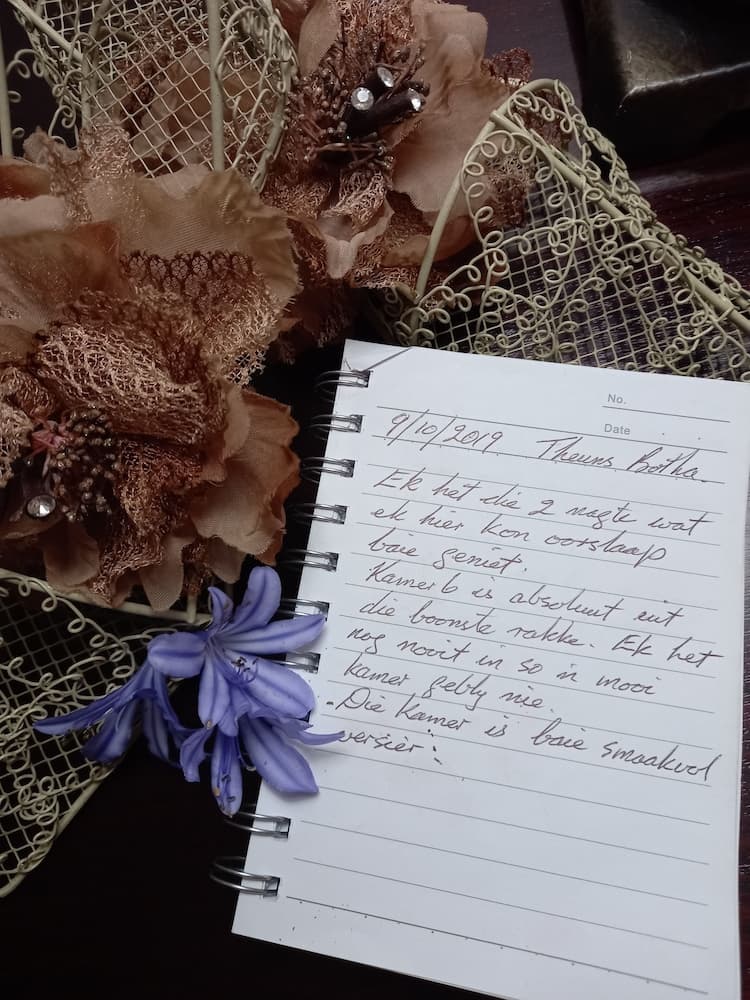 No.
Date
9/10/2019 Theuns Botha.
Ek het die 2 nagte wat
ek hier kon oorslaap
baie geniet.
Kamer 6 is absoluut uit
die boonste rakke. Ek het
nog nooit in so 'n mooi
kamer gebly nie.
- Die kamer is baie smaakvol
versier: